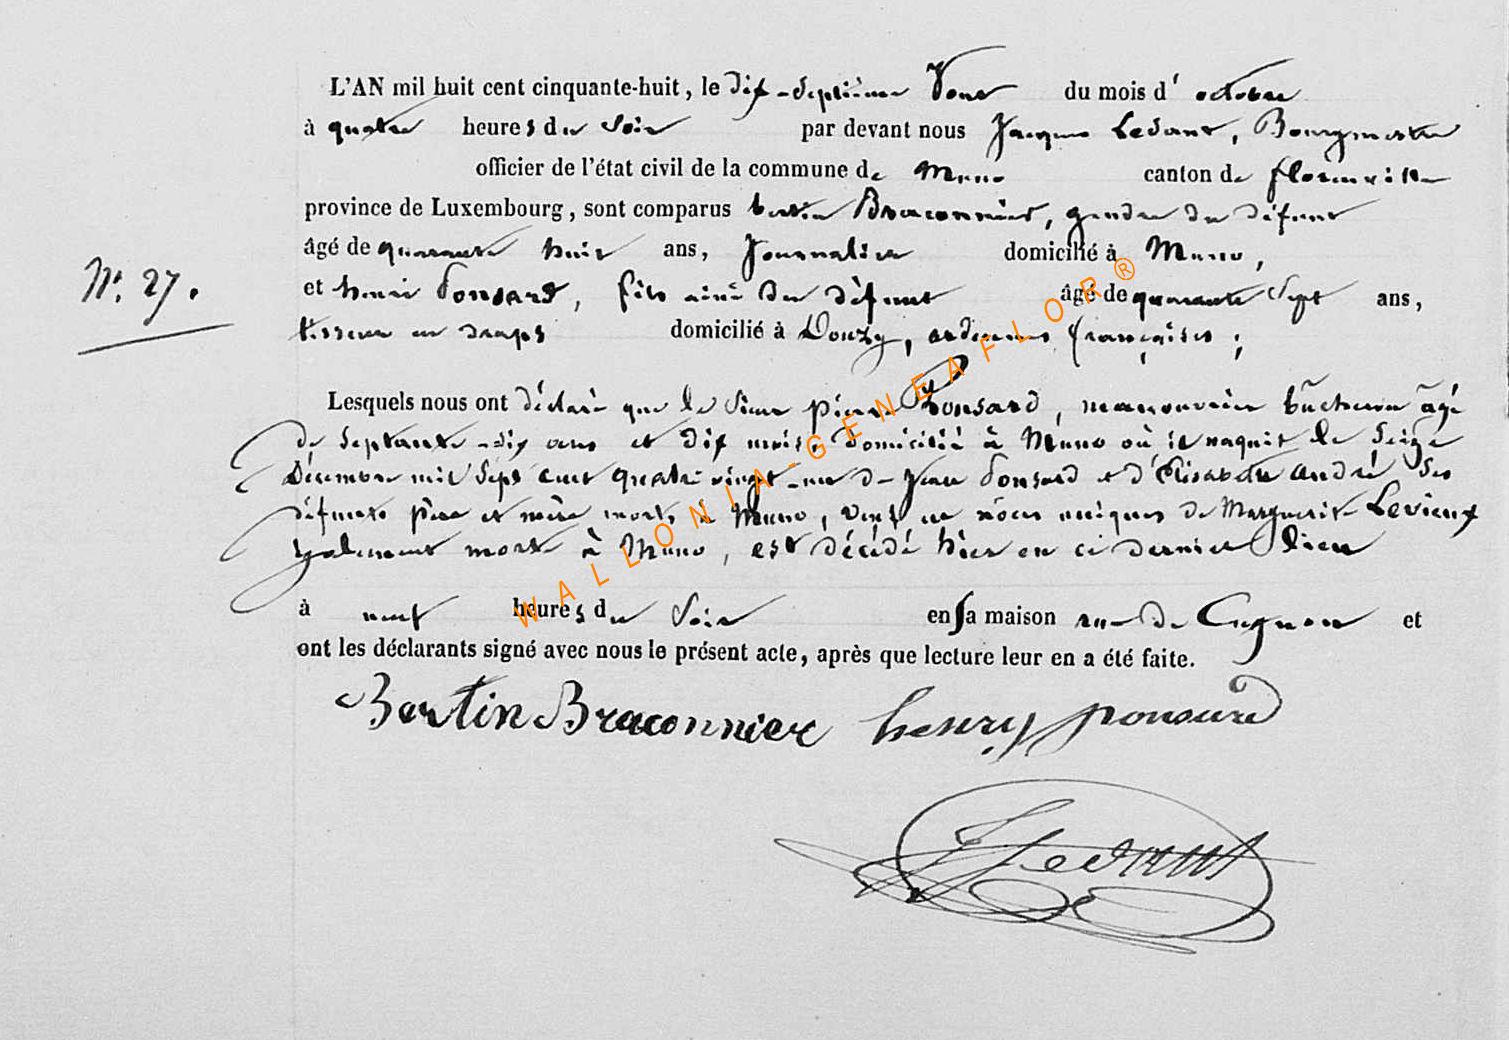 L'AN mil huit cent cinquante-huit, le dix-septième jour du mois d'octobre
à quatre heures du soir par devant nous Jacques Ledant, Bourgmestre
officier de l'état civil de la commune de Muno canton de florenville
province de Luxembourg, sont comparus bertin Braconnier, gendre du défunt
âgé de quarante huit ans, journalier domicilié à Muno,
N°. 27.
et henri Ponsard, fils ainé du défunt âgé de quarante sept ans,
tisseur en draps domicilié à Douzy, ardennes françaises ;
Lesquels nous ont déclaré que le sieur pierre Ponsard, manouvrier bûcheron âgé
de septante-dix ans et dix mois, domicilié à Muno où il naquit le seize
décembre mil sept cent quatre vingt-un de Jean Ponsard et d'Elisabeth andré ses
défunts père et mère morts à Muno, veuf en nôces uniques de Marguerite Levieux
également morte à Muno, est décédé hier en ce dernier lieu
à neuf heures du soir en sa maison rue de Cugnon et
ont les déclarants signé avec nous le présent acte, après que lecture leur en a été faite.
Bertin Braconnier henry ponsard
J Ledant
WALLONIA-GENEAFLOR®